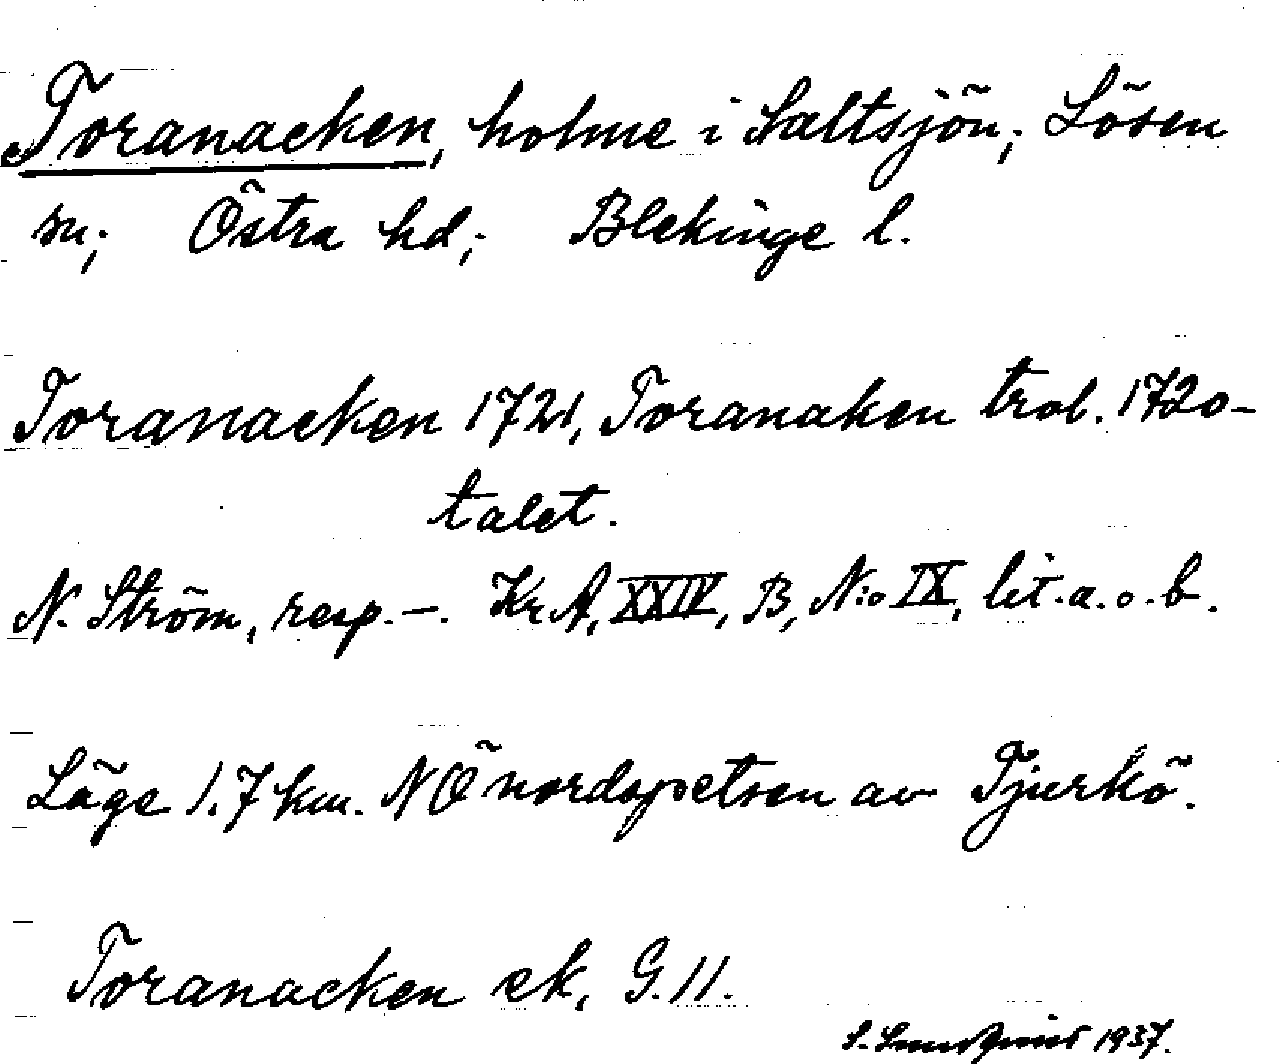 Toranacken, holme i Saltsjön; Lösen
sn; Östra hd; Blekinge l.
Toranacken 1721, Toranaken trol. 1720-
talet.
N. Ström, resp. –. Kr A, XXIV, B, N:o IX, lit. a. o. b.
Läge 1.7 km. NÖ nordspetsen av Tjurkö.
Toranacken ek, G. 11.
S. Lundquist 1937.